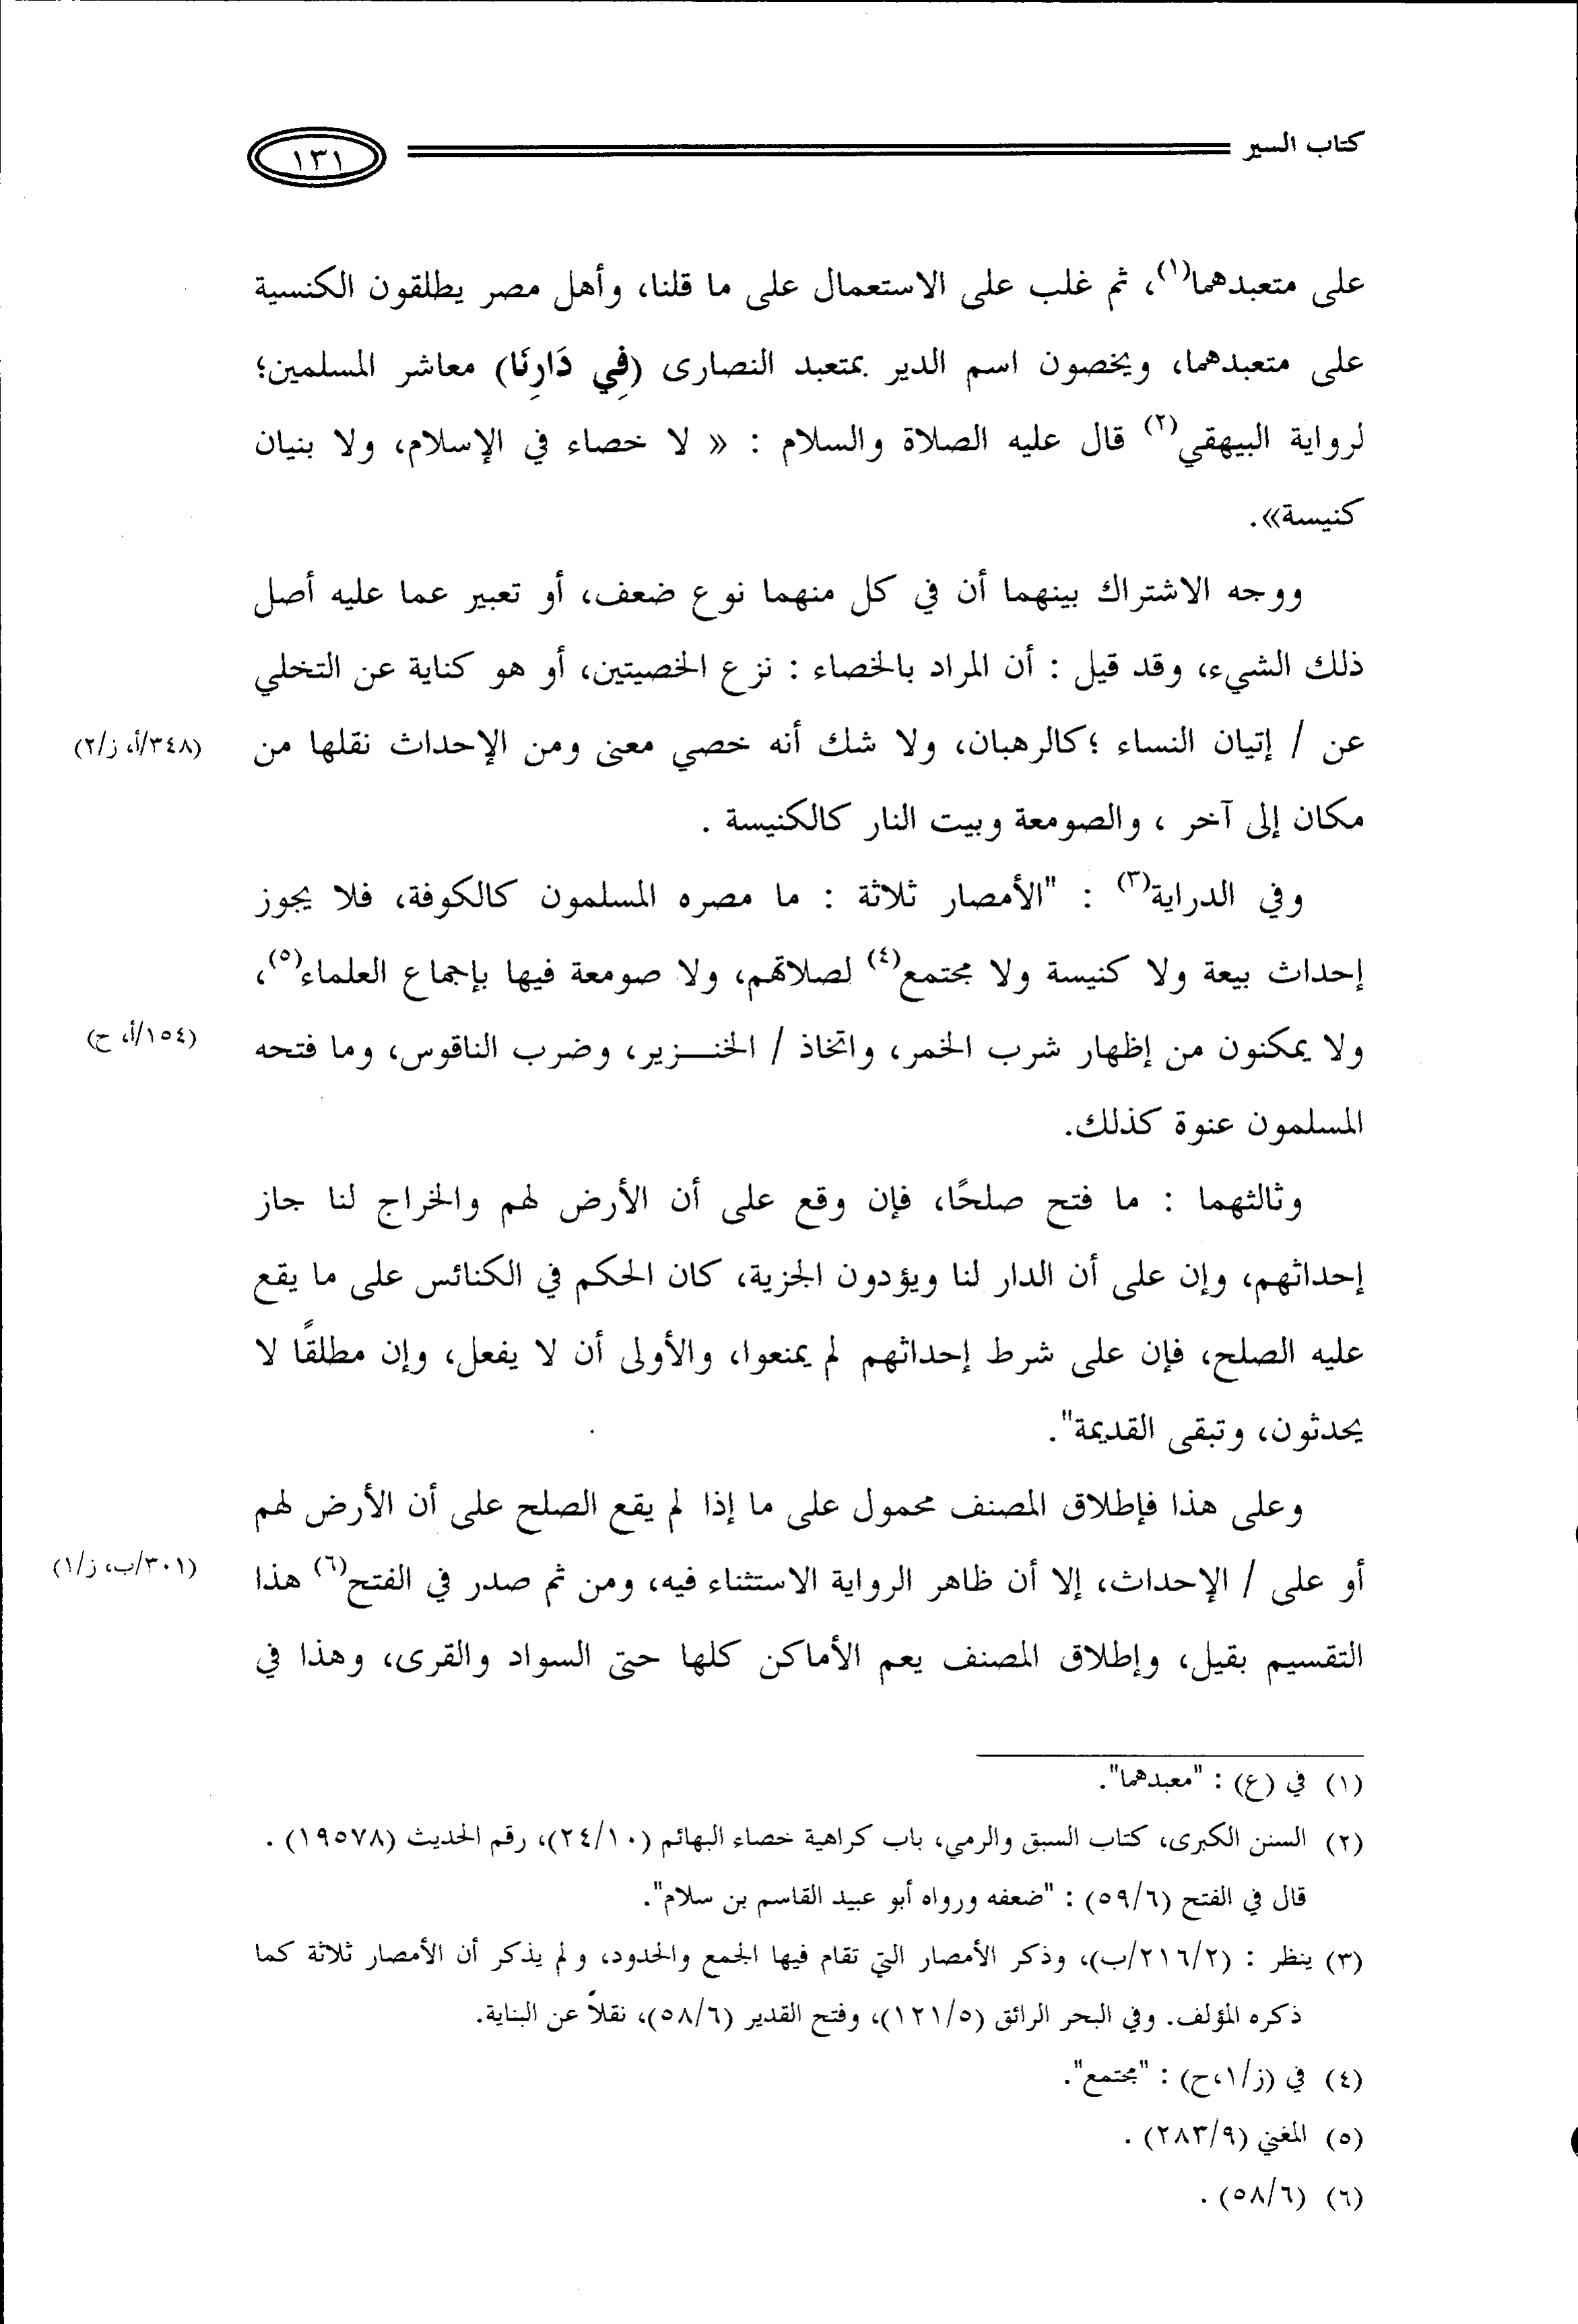 كتاب السير
١٣١
على متعبدهما(١)، ثم غلب على الاستعمال على ما قلنا، وأهل مصر يطلقون الكنسية
على متعبدهما، ويخصون اسم الدير بمتعبد النصارى (فِي دَارِنَا) معاشر المسلمين؛
لرواية البيهقي(٢) قال عليه الصلاة والسلام : « لا خصاء في الإسلام، ولا بنيان
كنيسة».
ووجه الاشتراك بينهما أن في كل منهما نوع ضعف، أو تعبير عما عليه أصل
ذلك الشيء، وقد قيل : أن المراد بالخصاء : نزع الخصيتين، أو هو كناية عن التخلي
عن / إتيان النساء ؛كالرهبان، ولا شك أنه خصي معنى ومن الإحداث نقلها من
(٣٤٨/أ، ز/٢)
مكان إلى آخر ، والصومعة وبيت النار كالكنيسة .
وفي الدراية(٣) : "الأمصار ثلاثة : ما مصره المسلمون كالكوفة، فلا يجوز
إحداث بيعة ولا كنيسة ولا مجتمع(٤) لصلاتهم، ولا صومعة فيها بإجماع العلماء(٥)،
ولا يمكنون من إظهار شرب الخمر، واتخاذ / الخنـــزير، وضرب الناقوس، وما فتحه
(١٥٤/أ، ح)
المسلمون عنوة كذلك.
وثالثهما : ما فتح صلحًا، فإن وقع على أن الأرض لهم والخراج لنا جاز
إحداثهم، وإن على أن الدار لنا ويؤدون الجزية، كان الحكم في الكنائس على ما يقع
عليه الصلح، فإن على شرط إحداثهم لم يمنعوا، والأولى أن لا يفعل، وإن مطلقًا لا
يحدثون، وتبقى القديمة".
وعلى هذا فإطلاق المصنف محمول على ما إذا لم يقع الصلح على أن الأرض لهم
أو على / الإحداث، إلا أن ظاهر الرواية الاستثناء فيه، ومن ثم صدر في الفتح(٦) هذا
(٣٠١/ب، ز/١)
التقسيم بقيل، وإطلاق المصنف يعم الأماكن كلها حتى السواد والقرى، وهذا في
(١) في (ع) : "معبدهما".
(٢) السنن الكبرى، كتاب السبق والرمي، باب كراهية خصاء البهائم (٢٤/١٠)، رقم الحديث (١٩٥٧٨) .
قال في الفتح (٥٩/٦) : "ضعفه ورواه أبو عبيد القاسم بن سلام".
(٣) ينظر : (٢١٦/٢/ب)، وذكر الأمصار التي تقام فيها الجمع والحدود، ولم يذكر أن الأمصار ثلاثة كما
ذكره المؤلف. وفي البحر الرائق (١٢١/٥)، وفتح القدير (٥٨/٦)، نقلاً عن البناية.
(٤) في (ز/١،ح) : "مجتمع".
(٥) المغني (٢٨٣/٩) .
(٦) (٥٨/٦) .